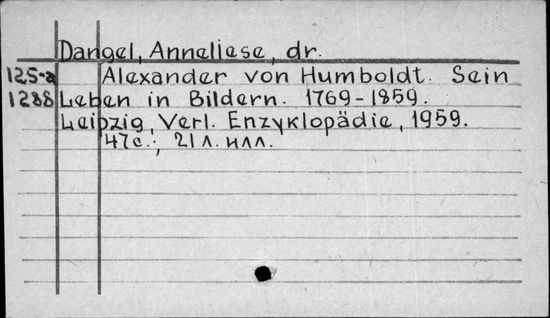 Dangel, Anneliese, dr.
125-a Alexander von Humboldt. Sein
1288 Leben in Bildern. 1769-1859.
Leipzig, Verl. Enzyklopädie, 1959.
47с.; 21 л. илл.